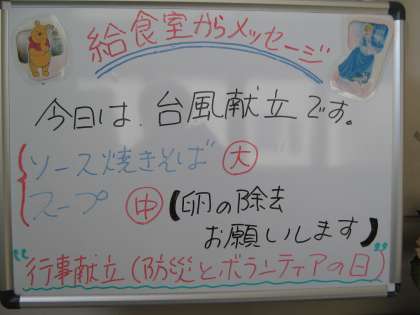 給食室からメッセージ
今日は、台風献立です。
ソース焼きそば 大
スープ 中 【卵の除去
お願いします】
"行事献立(防災とボランティアの日)"